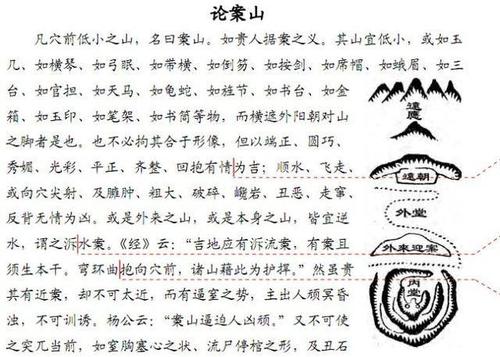 论案山
凡穴前低小之山，名曰案山。如贵人据案之义。其山宜低小，或如玉
几、如横琴、如弓眠、如带横、如倒笏、如按剑、如席帽、如蛾眉、如三
台、如官担、如天马、如龟蛇、如旌节、如书台、如金
箱、如玉印、如笔架、如书筒等物，而横遮外阳朝对山
之脚者是也。也不必拘其合于形像，但以端正、圆巧、
秀媚、光彩、平正、齐整、回抱有情为吉；顺水、飞走、
或向穴尖射、及臃肿、粗大、破碎、巉岩、丑恶、走窜、
反背无情为凶。或是外来之山，或是本身之山，皆宜逆
水，谓之泝水案。《经》云：“吉地应有泝流案，有案且
须生本干。穹环曲抱向穴前，诸山藉此为护捍。”然虽贵
其有近案，却不可太近，而有逼窒之势，主出人顽冥昏
浊，不可训诱。杨公云：“案山逼迫人凶顽。”又不可使
之突兀当前，如窒胸塞心之状、流尸停棺之形，及丑石
遠應
遠朝
外堂
外來迎案
內堂